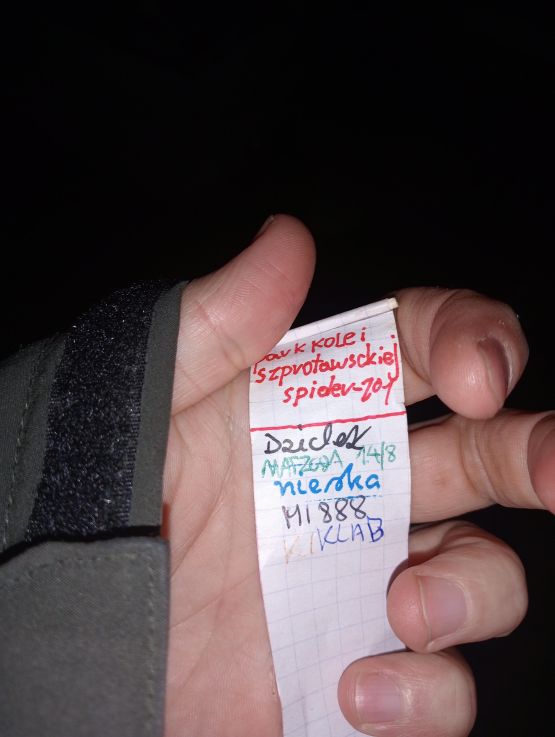 park kolei
szprotawsckiej
spider-701
Dzidek
MARZENA 14/8
nierka
MI888
KIKLAB